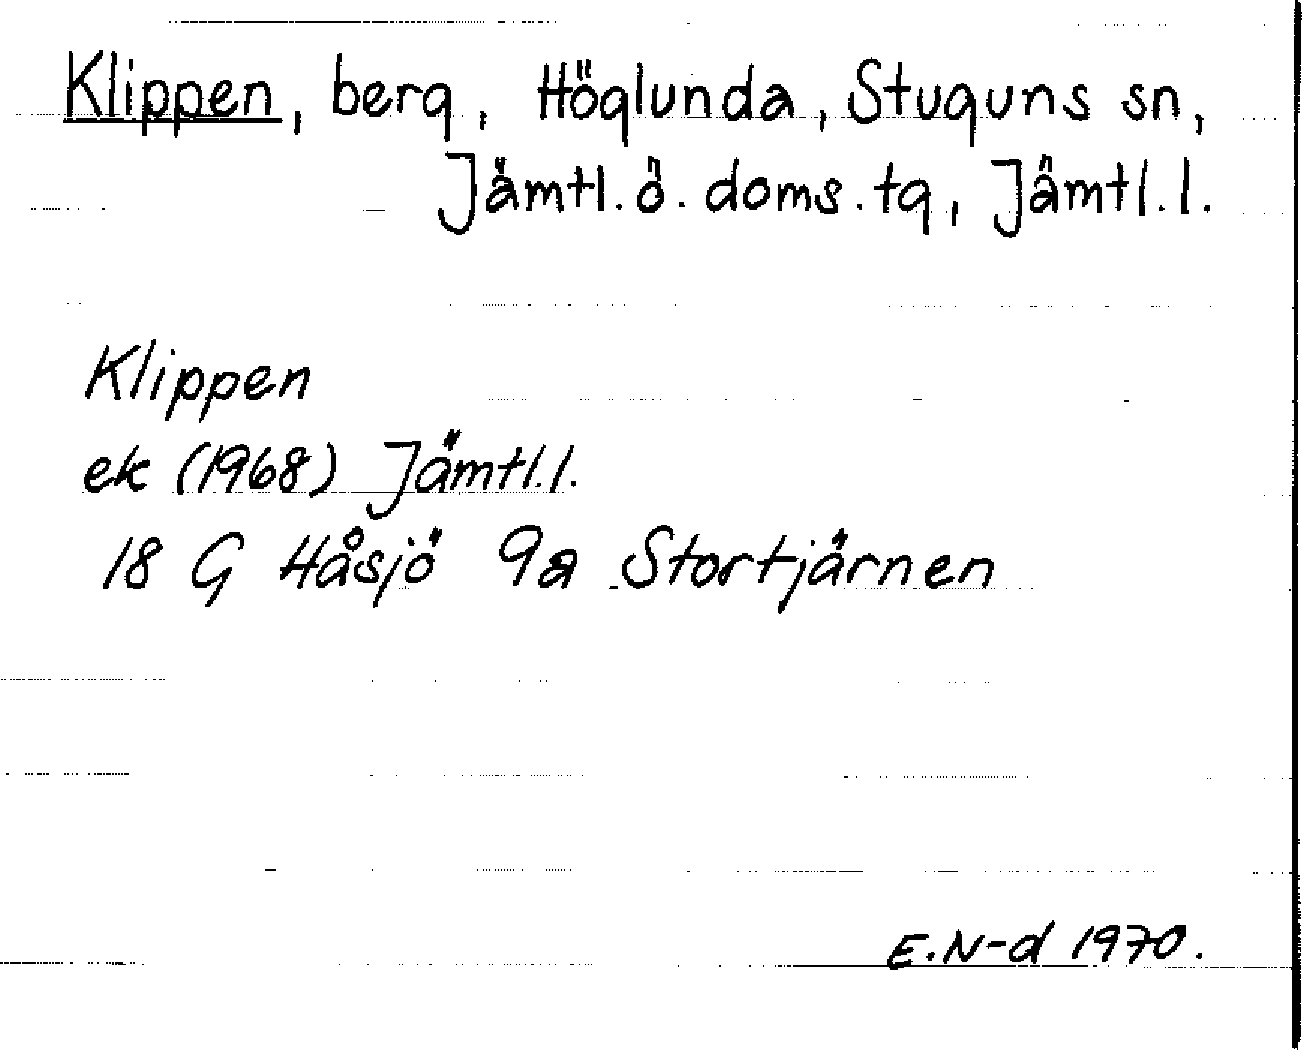 Klippen, berg, Höglunda, Stuguns sn,
Jämtl. ö. doms. tg, Jämtl. l.
Klippen
ek (1968) Jämtl. l.
18 G Håsjö 9a Stortjärnen
E. N-d 1970.